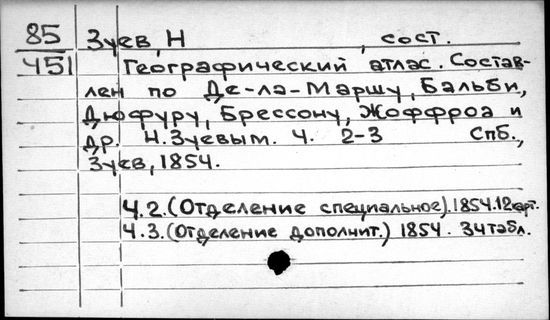 85 Зуев, Н , сост.
451 Географический атлас. Состав-
лен по Де-ла-Маршу, Бальби,
Дюфуру, Брессону, Жоффроа и
др. Н. Зуевым. Ч. 2-3 Спб.,
Зуев, 1854.
Ч.2. (Отделение специальное). 1854. 12 карт.
Ч.3. (Отделение дополнит.) 1854. 34 табл.